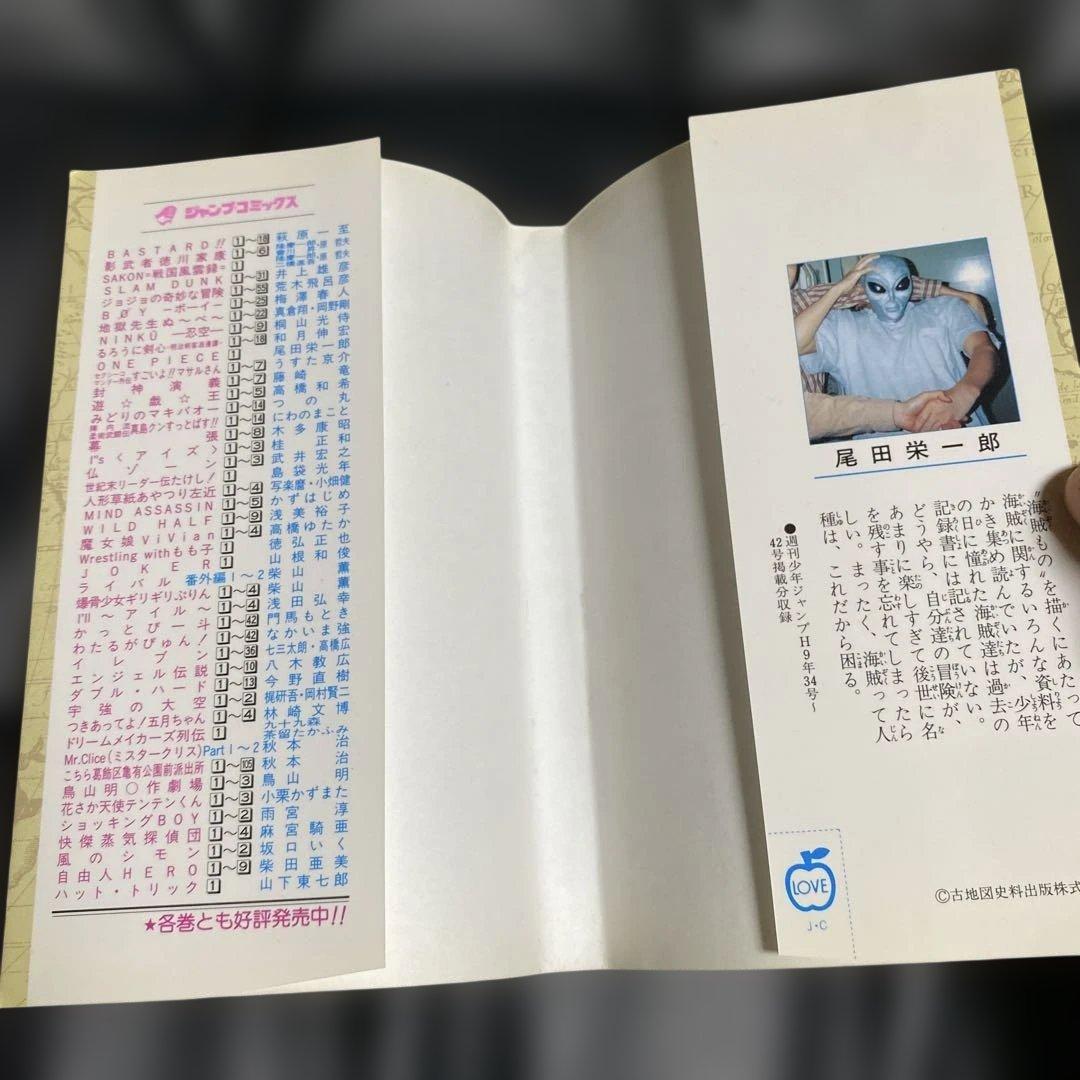 ジャンプ・コミックス
BASTARD!! 1〜18 萩原一至
影武者徳川家康 1〜6 隆慶一郎・原哲夫 會川昇
SAKON=戦国風雲録= 1 隆慶一郎・原哲夫 二橋進吾
SLAM DUNK 1〜31 井上雄彦
ジョジョの奇妙な冒険 1〜55 荒木飛呂彦
BØY ―ボーイ― 1〜25 梅澤春人
地獄先生ぬ〜べ〜 1〜22 真倉翔・岡野剛
NINKŪ ―忍空― 1〜9 桐山光侍
るろうに剣心-明治剣客浪漫譚- 1〜18 和月伸宏
ONE PIECE 1 尾田栄一郎
セクシーコマンドー外伝 すごいよ!!マサルさん 1〜7 うすた京介
封神演義 1〜7 藤崎竜
遊☆戯☆王 1〜5 高橋和希
みどりのマキバオー 1〜14 つの丸
陣内流柔術武闘伝 真島クンすっとばす!! 1〜14 にわのまこと
幕張 1〜8 木多康昭
I"s〈アイズ〉 1〜3 桂正和
仏ゾーン 1〜3 武井宏之
世紀末リーダー伝たけし! 1 島袋光年
人形草紙あやつり左近 1〜4 写楽麿・小畑健
MIND ASSASSIN 1〜5 かずはじめ
WILD HALF 1〜9 浅美裕子
魔女娘ViVian 1〜4 高橋ゆたか
Wrestling withもも子 1 徳弘正也
JOKER 1 山根和俊
ライバル 番外編1〜2 柴山薫
爆骨少女ギリギリぷりん 1〜4 柴山薫
I'll 〜アイル〜 1〜4 浅田弘幸
かっとび一斗 1〜42 門馬もとき
わたるがぴゅん! 1〜42 なかいま強
イレブン 1〜36 七三太朗・高橋広
エンジェル伝説 1〜10 八木教広
ダブル・ハード 1〜13 今野直樹
宇強の大空 1〜2 梶研吾・岡村賢二
つきあってよ!五月ちゃん 1〜4 林崎文博
ドリームメイカーズ列伝 1 九十九森 茶留たかふみ
Mr.Clice(ミスタークリス) Part1〜2 秋本治
こちら葛飾区亀有公園前派出所 1〜105 秋本治
鳥山明○作劇場 1〜3 鳥山明
花さか天使テンテンくん 1〜3 小栗かずまた
ショッキングBOY 1〜2 雨宮淳
快傑蒸気探偵団 1〜4 麻宮騎亜
風のシモン 1〜2 坂口いく
自由人HERO 1〜9 柴田亜美
ハット・トリック 1 山下東七郎
★各巻とも好評発売中!!
尾田栄一郎
"海賊もの"を描くにあたって
海賊に関するいろんな資料を
かき集め読んでいたが、少年
の日に憧れた海賊達は過去の
記録書には記されていない。
どうやら、自分達の冒険が、
あまりに楽しすぎて後世に名
を残す事を忘れてしまったら
しい。まったく、海賊って人
種は、これだから困る。
●週刊少年ジャンプH9年34号〜
42号掲載分収録
LOVE
J・C
©古地図史料出版株式